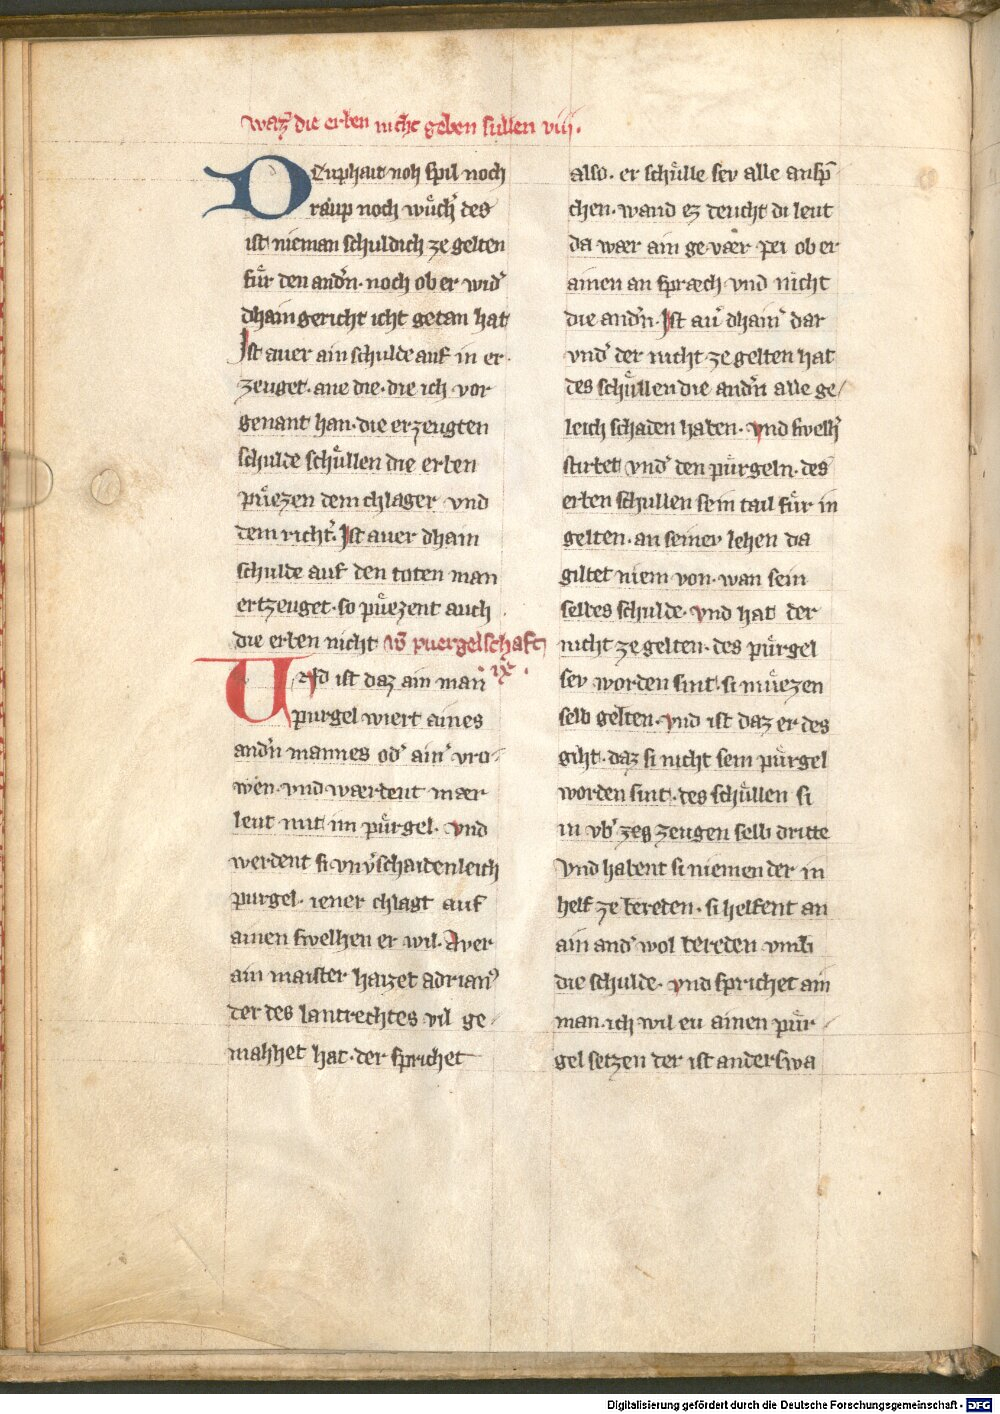 waz die erben nicht geben sullen viii.
Deuphait noh spil noch
raup noch wuͤcher des
ist nieman schuldich ze gelten
fuͤr den andern. noch ob er wider
dhain gericht icht getan hat
Ist auer ain schulde auf in er
zeuget. ane die. die ich vor
genant han. die erzeugten
schulde schuͤllen die erben
puͤezen dem chlager vnd
dem richter. Ist auer dhain
schulde auf den toten man
ertzeuget. so puͤezent auch
die erben nicht võ puergelschaft
ix.
Vnd ist daz ain man
purgel wiert aines
andern mannes oder ainer vro
wen. vnd waerbent maer
leut mit im puͤrgel. vnd
werdent si vnverschaidenleich
purgel. iener chlagt auf
ainen swelhen er wil. Aver
ain maister haizet adrianus
der des lantrechtes vil ge
mahhet hat. der sprichet
also. er schuͤlle sev alle ansp̄
chen. wand ez deucht di leut
da waer ain gevaer pei ob er
ainen an spraech vnd nicht
die andern. Ist auer dhainer dar
vnder der nicht ze gelten hat
des schuͤllen die andern alle ge
leich schaden haben. vnd swelher
stirbet vnder den puͤrgeln. des
erben schullen sein tail fuͤr in
gelten. an seinev lehen da
giltet niem von. wan sein
selbes schulde. vnd hat der
nicht ze gelten. des puͤrgel
sev worden sint. si muͤezen
selb gelten. vnd ist daz er des
giht. daz si nicht sein puͤrgel
worden sint. des schuͤllen si
in vber zeug zeugen selb dritte
vnd habent si niemen der in
helf ze bereden. si helfent an
ain ander wol bereden vmb
die schulde. vnd sprichet ain
man. ich wil eu ainen puͤr
gel setzen der ist anderswa
Digitalisierung gefördert durch die Deutsche Forschungsgemeinschaft - DFG